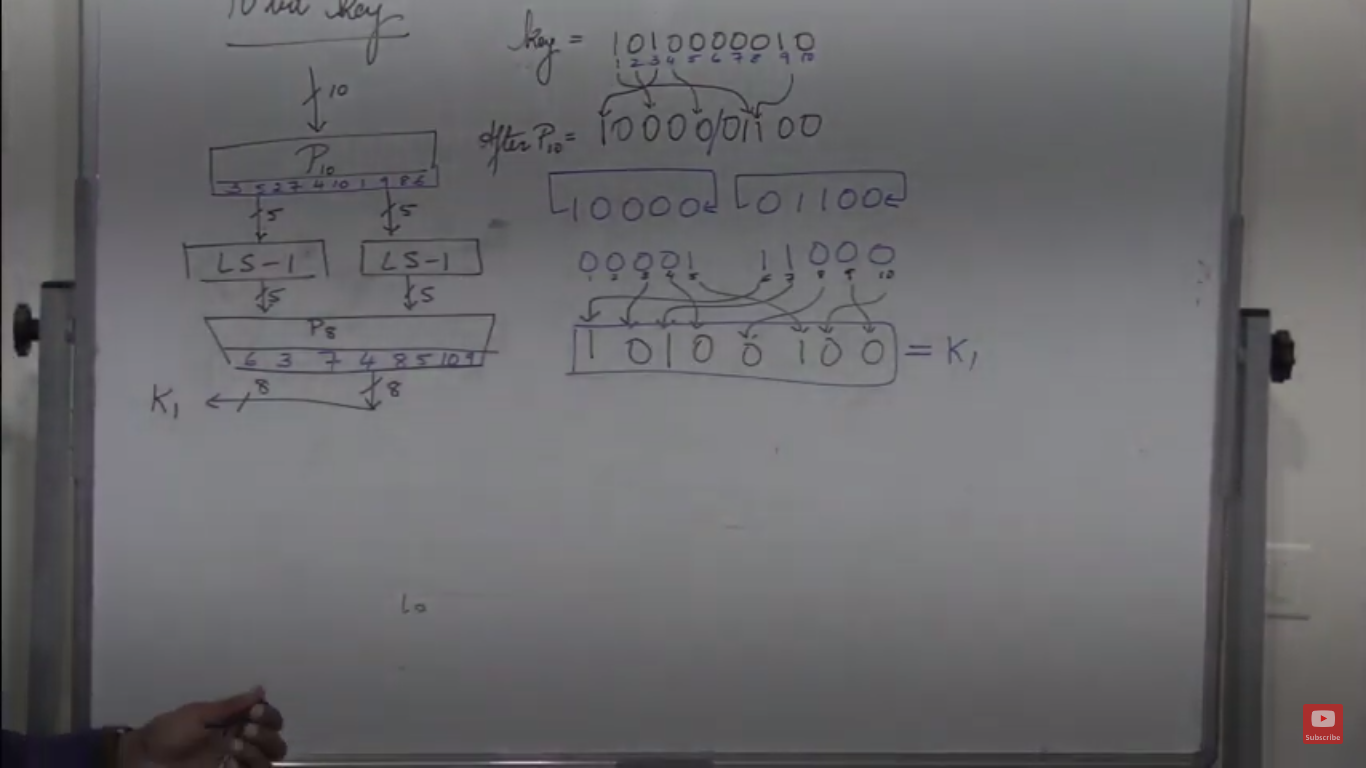 10 bit key
10
P10
3 5 2 7 4 10 1 9 8 6
5 5
LS-1 LS-1
5 5
P8
6 3 7 4 8 5 10 9
8 8
K1
key = 1010000010
1 2 3 4 5 6 7 8 9 10
After P10 = 10000/01100
10000 01100
00001 11000
1 2 3 4 5 6 7 8 9 10
1 0 1 0 0 1 0 0 = K1
Lo
Subscribe